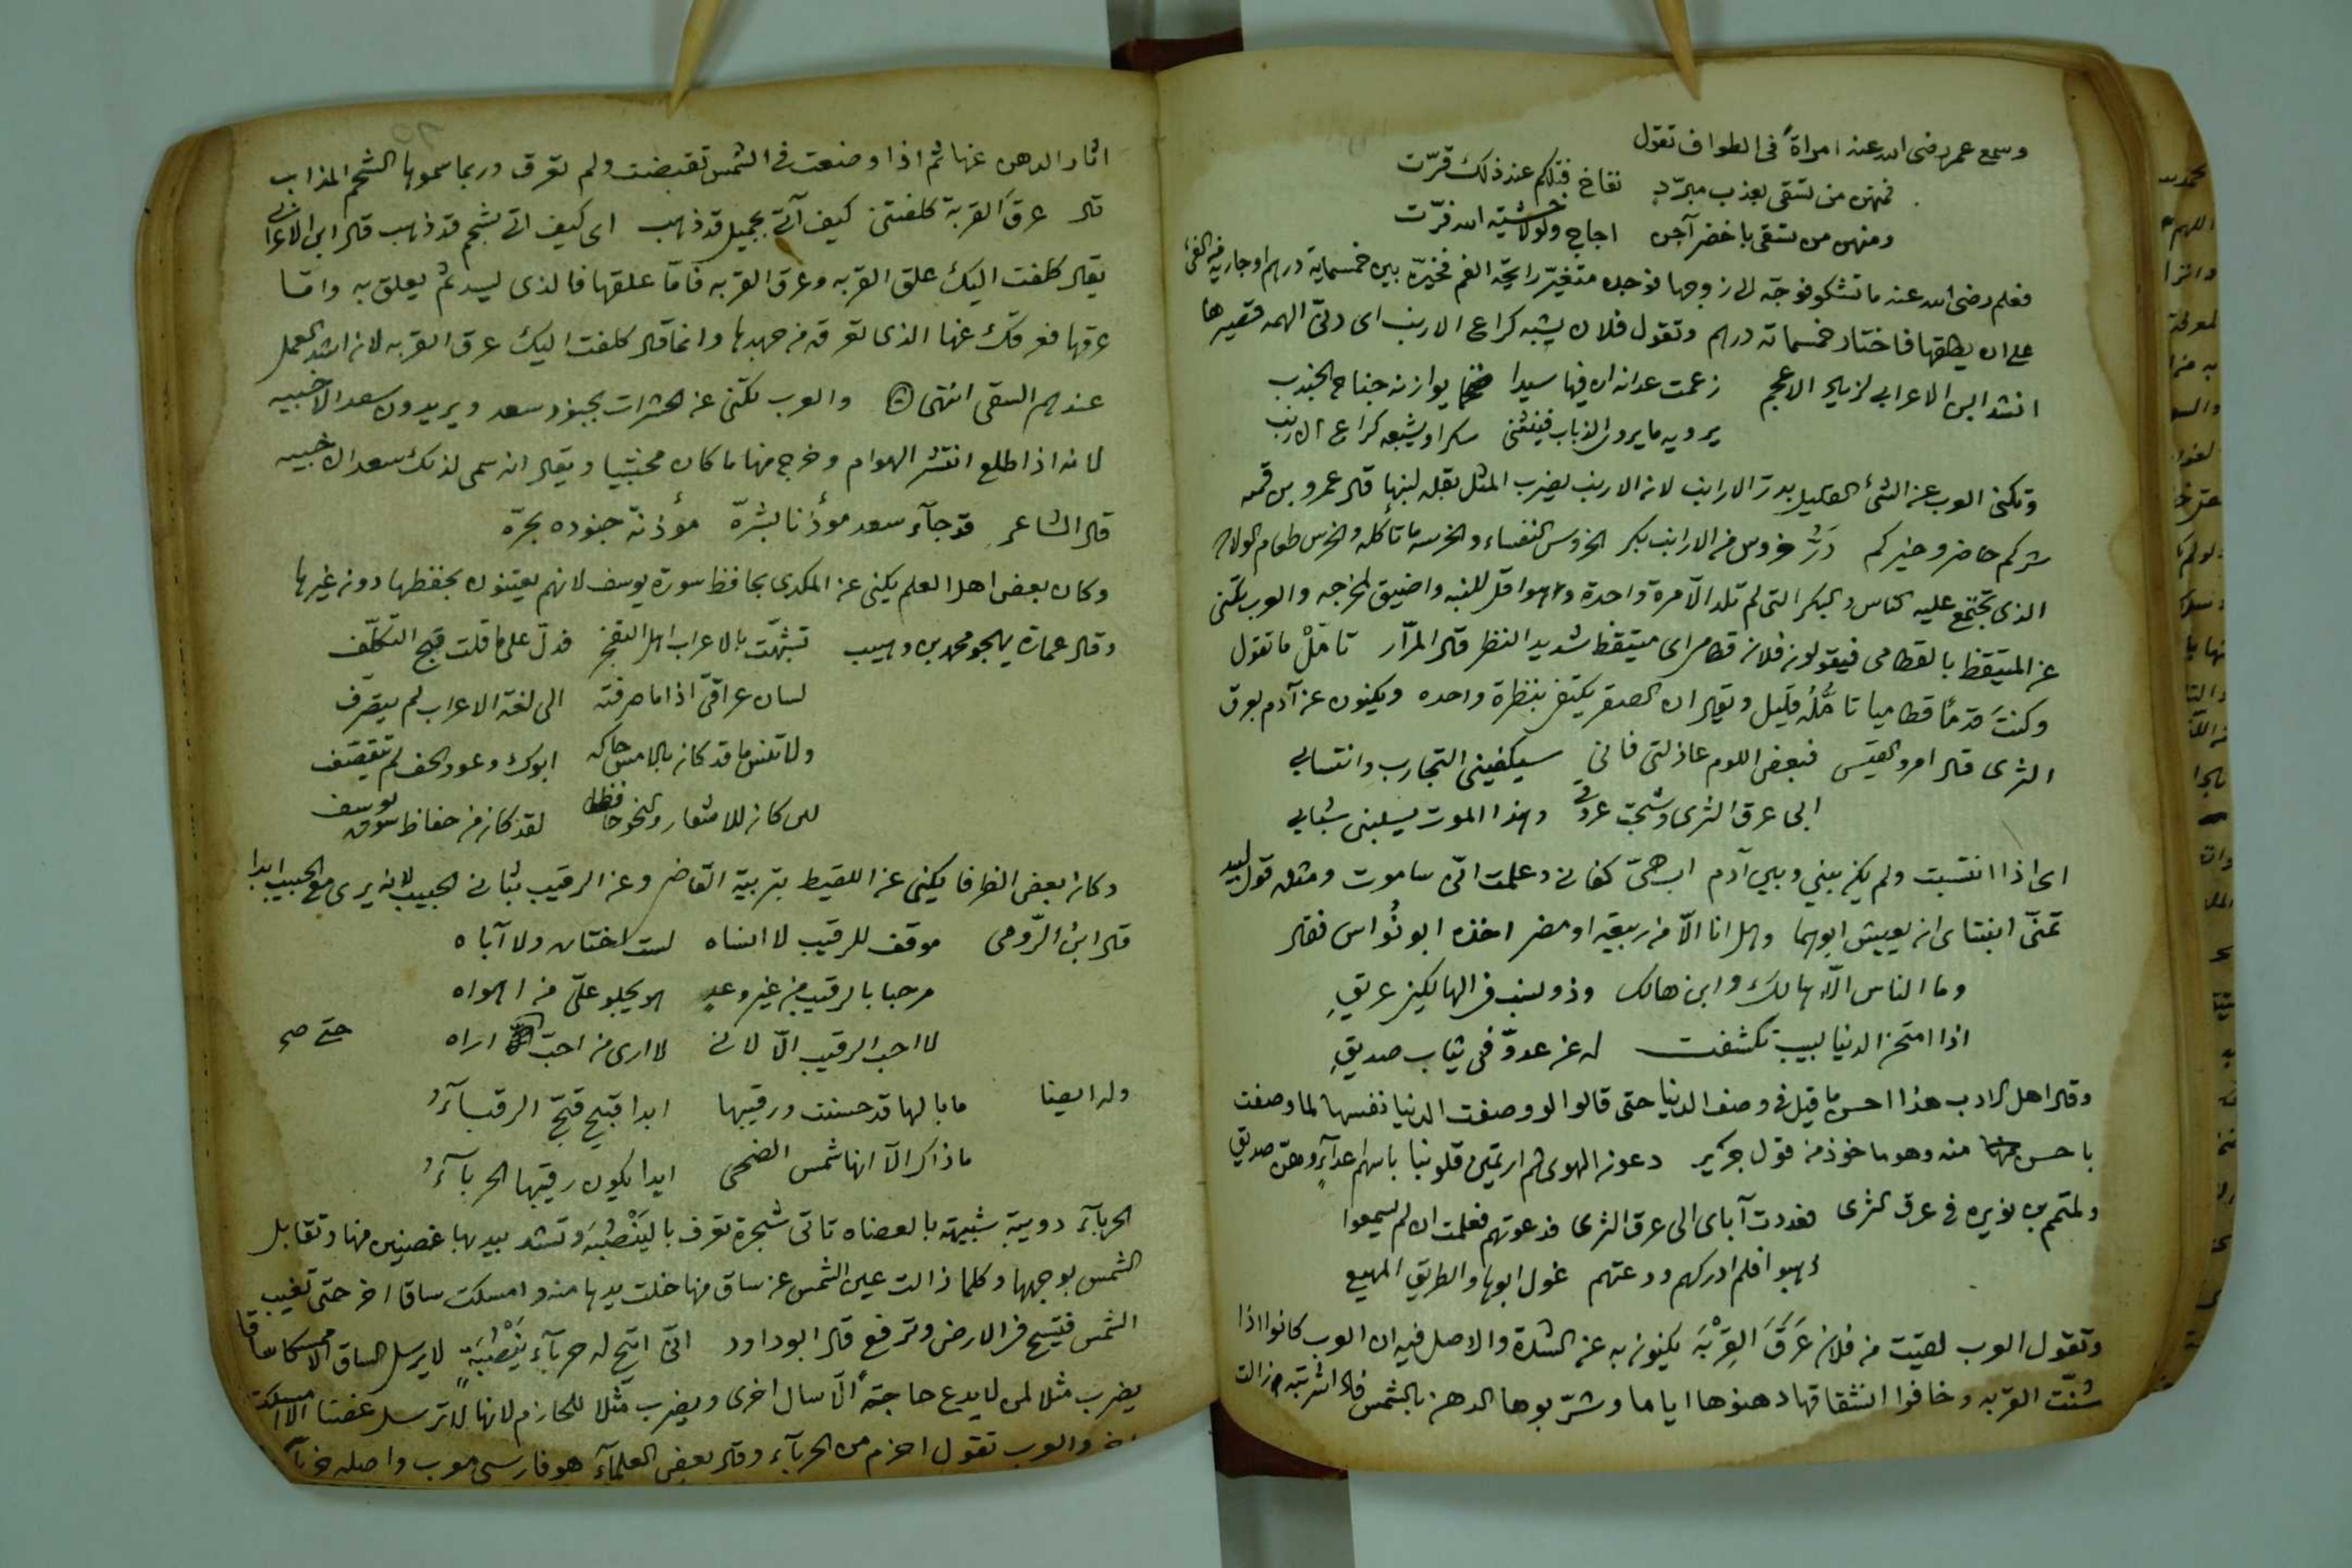 وسمع عمر رضى الله عنه امراة فى الطواف تقول
فمنهن من تسقى بعذب مبرّد نقاخ فتلكم عند ذلك قرّت
ومنهن من تسقى باخضر آجن اجاج ولولا خشية الله فرّت
فعلم رضى الله عنه ما تشكو فوجّه الى زوجها فوجده متغيّر رايحة الفم فخيّره بين خمسماية درهم او جارية من الفئ
على ان يطلقها فاختار خمسمائة درهم وتقول فلان يشبه كراع الارنب اى دنىّ الهمه قصيرها
انشد ابن الاعرابي لزياد الاعجم زعمت عدانه ان فيها سيدا ضخما يوازنه جناح الجندب
يرويه ما يروى الذباب فينثنى سكرا ويشبعه كراع الارنب
وتكنى العرب عن الشئ القليل بدرّ الارانب لانه الارنب يضرب المثل بقله لبنها قال عمرو بن قمه
شركم حاضر وخيركم دَرُّ خروس من الارانب بكر الخروس النفساء والخرسه ما تأكله والخرس طعام الولاده
الذى تجتمع عليه الناس والبكر التى لم تلد الّا مرة واحدة وهو اقل للبنه واضيق لمخرجه والعرب تكنى
عن المتيقظ بالقطامى فيقولون فلان قطامى اى متيقظ شديد النظر قال المرّار تامّلْ ما تقول
وكنتَ قدمًا قطاميا تامُّلُه قليل ويقال ان الصقر يكتفى بنظرة واحده ويكنون عن آدم بعرق
الثرى قال امرو القيس فبعض اللوم عاذلتى فانى سيكفينى التجارب وانتسابي
الى عرق الثرى وشجت عروقى وهذا الموت يسلبنى شبابي
اى اذا انتسبت ولم يكن بينى وبين آدم اب حىّ كفانى وعلمت انّى ساموت ومثله قول لبيد
تمنّى ابنتاى ان يعيش ابوهما وهل انا الّا من ربيعة او مضر اخذه ابو نُواس فقال
وما الناس الّا هالك وابن هالك وذو نسب فى الهالكين عريقِ
اذا امتحن الدنيا لبيب تكشفت له عن عدوّ فى ثياب صديقِ
وقال اهل الادب هذا احسن ما قيل فى وصف الدنيا حتى قالوا لو وصفت الدنيا نفسها لما وصفت
باحسن منه وهو ماخوذ من قول جرير دعون الهوى ثم ارتمين قلوبنا باسهم اعدآءٍ وهنّ صديق
ولمتمم بن نويره فى عرق الثرى فعددت آباى الى عرق الثرى فدعوتهم فعلمت ان لم يسمعوا
ذهبوا فلم ادركهم ودعتهم غول ابوها والطريق المهيع
وتقول العرب لقيت من فلان عَرَقَ القِرْبَة يكنون به عن الشدة والاصل فيه ان العرب كانوا اذا
شنّت القربه وخافوا انشقاقها دهنوها اياما وشرّبوها الدهن بالشمس فاذا اشربته وزالت
اثار الدهن عنها ثم اذا وضعت فى الشمس تقبضت ولم تعرق وربما سموها الشحم المذاب
قال عرق القربة كلفتنى كيف آتى بجميل قد ذهب اى كيف اتى بشحم قد ذهب قال ابن الاعرابى
يقال كلفت اليك علق القربه وعرق القربه فامّا علقها فالذى ليسد ثم يعلق به وامّا
عرقها فعرقك عنها الذى تعرقه من جهدها وانما قال كلفت اليك عرق القربه لانه اشد العمل
عندهم السقى انتهى والعرب تكنى عن الحشرات بجنود سعد ويريدون سعد الاخبيه
لانه اذا طلع انتشر الهوام وخرج منها ما كان مختبيا ويقال انه سمى لذلك سعد الاخبيه
قال الشاعر قد جآء سعد موذنا بشرّه موذنة جنوده بحرّه
وكان بعض اهل العلم يكنى عن المكدى بحافظ سورة يوسف لانهم يعتنون بحفظها دون غيرها
وقال عمارة يهجو محمد بن وهيب تشبّهت بالاعراب اهل التعجرف فدلّ على ما قلت قبح التكلّف
لسان عراقىّ اذا ما صرفته الى لغة الاعراب لم يتصرّف
ولا تنس ما قد كان بالامس حاكه ابوك وعود الحف لم يتقصف
لئن كان للاشعار والنحو حافظا لقد كان من حفاظ سورة يوسف
وكان بعض الظرفا يكنى عن اللقيط بتربية القاضى وعن الرقيب بثانى الحبيب لانه يرى مع الحبيب ابدا
قال ابن الرّومى موقف للرقيب لا انساه لست اختاره ولا آباه
مرحبا بالرقيب من غير وعدٍ جاء يجلو علىّ من اهواه
لا احب الرقيب الّا لانى لا ارى من احبّ اراه حتى صح
وله ايضا ما بالها قد حسنت ورقيبها ابدا قبيح قبّح الرقبآءُ
ما ذاك الّا انها شمس الضحى ابدا يكون رقيبها الحربآءُ
الحربآء دويبة شبيهة بالعضاه تاتى شجرة تعرف بالتَنْضُبَه وتشد بيديها غصنين منها وتقابل
الشمس بوجهها وكلما زالت عين الشمس عن ساق منها خلت يدها منه وامسكت ساقا اخر حتى تغيب
الشمس فتسيح فى الارض وترفع قال ابو داود انّى اتيح له حربآء تَنْضُبَةٍ لا يرسل الساق الا ممسكا ساقا
يضرب مثلا لمن لا يدع حاجة الّا سال اخرى ويضرب مثلا للحازم لانها لا ترسل غصنا الا امسكت
اخر والعرب تقول احزم من الحربآء وقال بعض العلمآء هو فارسى معرب واصله خربآ